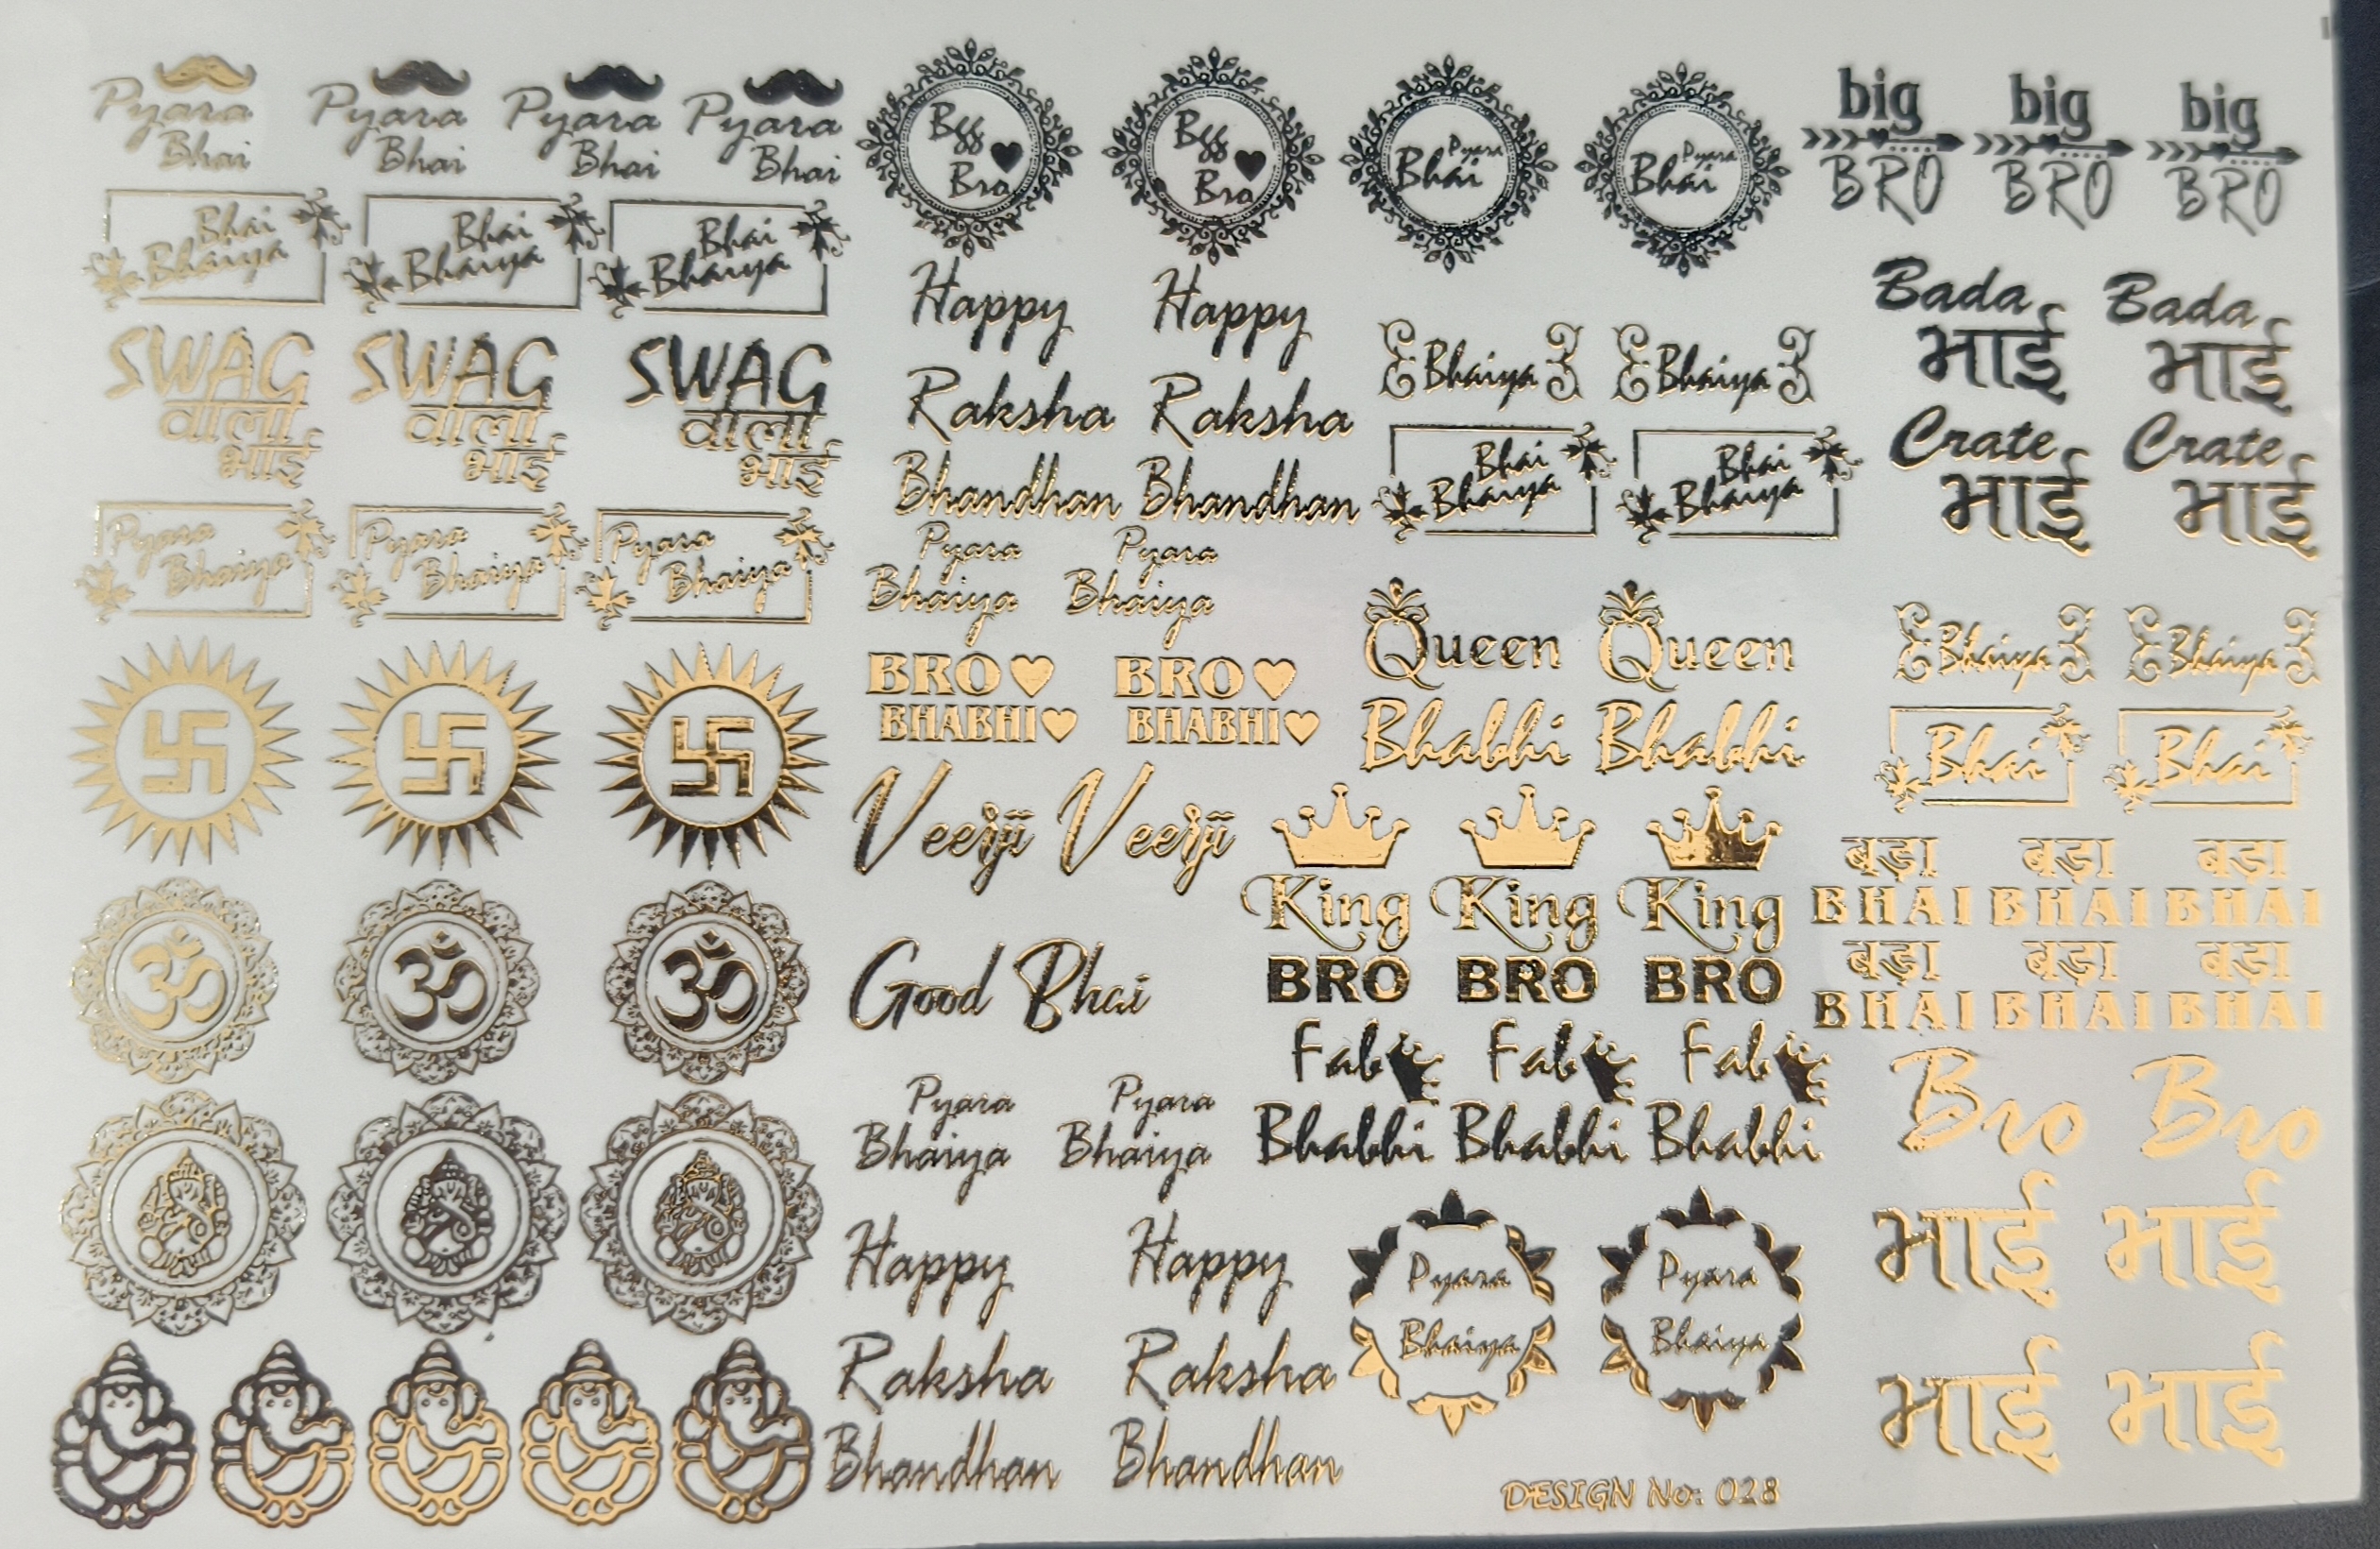 Pyara
Bhai
Pyara
Bhai
Pyara
Bhai
Pyara
Bhai
Bhai
Bhaiya
Bhai
Bhaiya
Bhai
Bhaiya
SWAG
वाला
भाई
SWAG
वाला
भाई
SWAG
वाला
भाई
Pyara
Bhaiya
Pyara
Bhaiya
Pyara
Bhaiya
ॐ
ॐ
ॐ
Bgg
Bro
Bgg
Bro
Pyara
Bhai
Pyara
Bhai
Happy
Raksha
Bhandhan
Happy
Raksha
Bhandhan
Pyara
Bhaiya
Pyara
Bhaiya
BRO
BHABHI
BRO
BHABHI
Veerji
Veerji
Good Bhai
Pyara
Bhaiya
Pyara
Bhaiya
Happy
Raksha
Bhandhan
Happy
Raksha
Bhandhan
Bhaiya
Bhaiya
Bhai
Bhaiya
Bhai
Bhaiya
Queen
Bhabhi
Queen
Bhabhi
King
BRO
King
BRO
King
BRO
Fab
Bhabhi
Fab
Bhabhi
Fab
Bhabhi
Pyara
Bhaiya
Pyara
Bhaiya
DESIGN No: 028
big
BRO
big
BRO
big
BRO
Bada
भाई
Bada
भाई
Crate
भाई
Crate
भाई
Bhaiya
Bhaiya
Bhai
Bhai
बड़ा
BHAI
बड़ा
BHAI
बड़ा
BHAI
बड़ा
BHAI
बड़ा
BHAI
बड़ा
BHAI
Bro
Bro
भाई
भाई
भाई
भाई